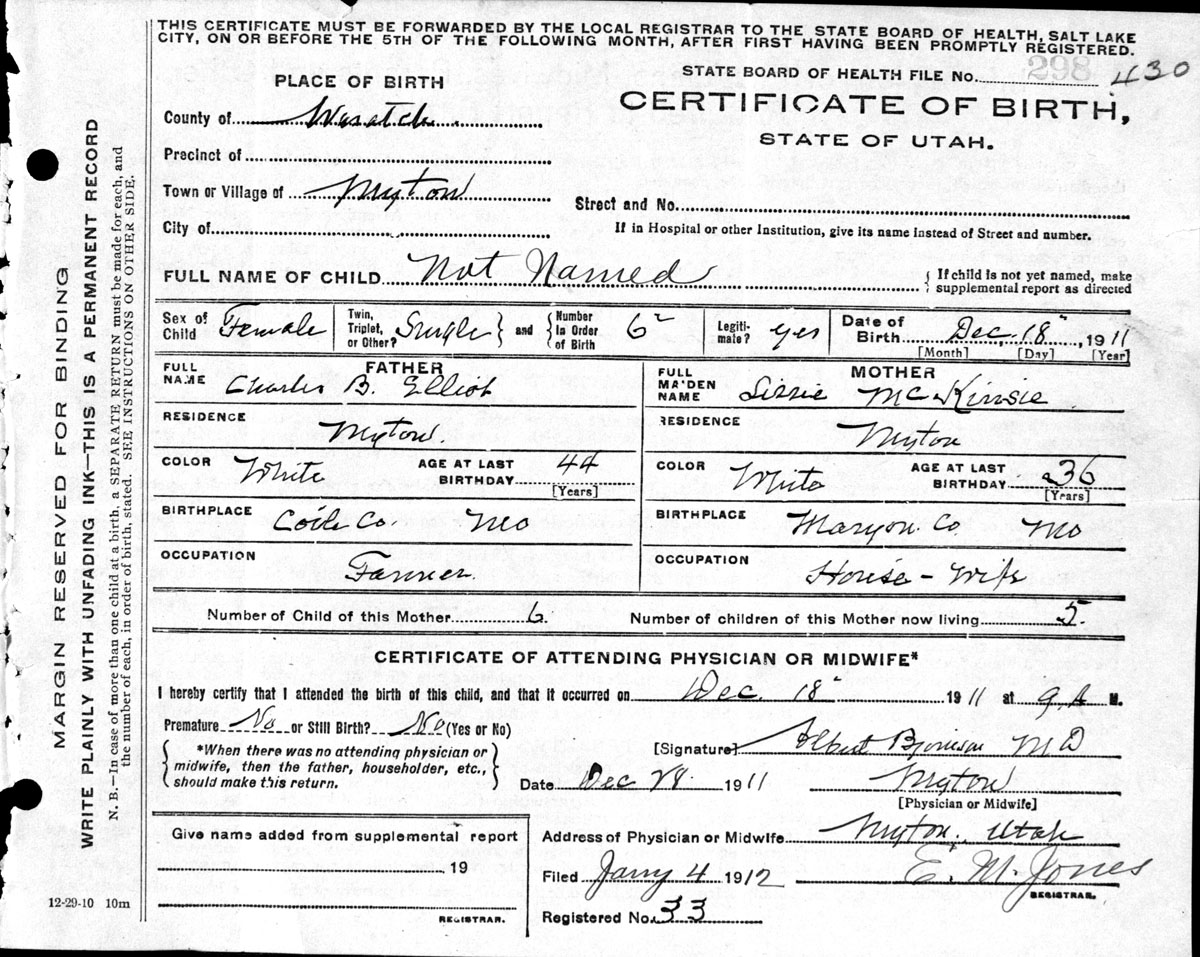 THIS CERTIFICATE MUST BE FORWARDED BY THE LOCAL REGISTRAR TO THE STATE BOARD OF HEALTH, SALT LAKE
CITY, ON OR BEFORE THE 5TH OF THE FOLLOWING MONTH, AFTER FIRST HAVING BEEN PROMPTLY REGISTERED.
STATE BOARD OF HEALTH FILE No. 298 430
PLACE OF BIRTH
CERTIFICATE OF BIRTH,
STATE OF UTAH.
County of Wasatch.
Precinct of
Town or Village of Myton
Street and No.
City of
If in Hospital or other Institution, give its name instead of Street and number.
FULL NAME OF CHILD Not Named
{ If child is not yet named, make supplemental report as directed
Sex of Child Female
Twin, Triplet, or Other? Single } and { Number in Order of Birth 6
Legiti-mate? yes
Date of Birth Dec. 18, 1911
[Month] [Day] [Year]
FATHER
FULL NAME Charles B. Elliot
MOTHER
FULL MAIDEN NAME Lizzie McKinsie
RESIDENCE Myton.
RESIDENCE Myton
COLOR White AGE AT LAST BIRTHDAY 44 [Years]
COLOR White AGE AT LAST BIRTHDAY 36 [Years]
BIRTHPLACE Co. Mo
BIRTHPLACE Maryon. Co Mo
OCCUPATION Farmer.
OCCUPATION House-wife
Number of Child of this Mother 6
Number of children of this Mother now living 5.
CERTIFICATE OF ATTENDING PHYSICIAN OR MIDWIFE*
I hereby certify that I attended the birth of this child, and that it occurred on Dec. 18 1911 at 9 A M.
Premature No or Still Birth? No (Yes or No)
{ *When there was no attending physician or midwife, then the father, householder, etc., should make this return. }
[Signature] Albert M D
Date Dec 28. 1911 Myton
[Physician or Midwife]
Give name added from supplemental report
19
REGISTRAR.
Address of Physician or Midwife Myton, Utah
Filed Jany 4 1912 E. M. Jones
REGISTRAR.
Registered No. 33
12-29-10 10m
MARGIN RESERVED FOR BINDING
WRITE PLAINLY WITH UNFADING INK—THIS IS A PERMANENT RECORD
N. B.—In case of more than one child at a birth, a SEPARATE RETURN must be made for each, and
the number of each, in order of birth, stated. SEE INSTRUCTIONS ON OTHER SIDE.